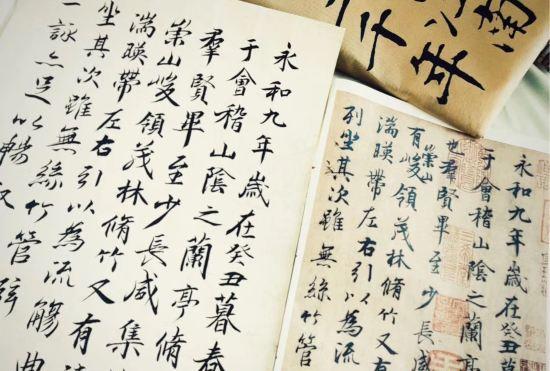 千年
永和九年歲在癸丑
于會稽山陰之蘭亭
也羣賢畢至少長咸
有崇山峻領茂林脩竹
湍暎帶左右引以為流
列坐其次雖無絲竹管
永和九年歲在癸丑暮春
于會稽山陰之蘭亭脩
羣賢畢至少長咸集
崇山峻領茂林脩竹又有
湍暎帶左右引以為流觴曲
坐其次雖無絲竹管
一詠亦足以暢